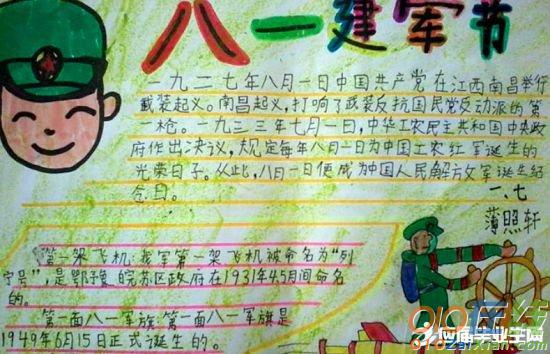 八一建军节
一九二七年八月一日中国共产党在江西南昌举行
武装起义。南昌起义,打响了武装反抗国民党反动派的第
一枪。一九三三年七月一日,中华工农民主共和国中央政
府作出决议,规定每年八月一日为中国工农红军诞生的
光荣日子。从此,八月一日便成为中国人民解放军诞生纪
念日。
一、七
薄照轩
第一架飞机:我军第一架飞机被命名为“列
宁号”,是鄂豫皖苏区政府在1931年4 5月间命名
的。
第一面八一军旗:第一面八一军旗是
1949年6月15日正式诞生的。
应届毕业生网
910在线
910zaixian.com